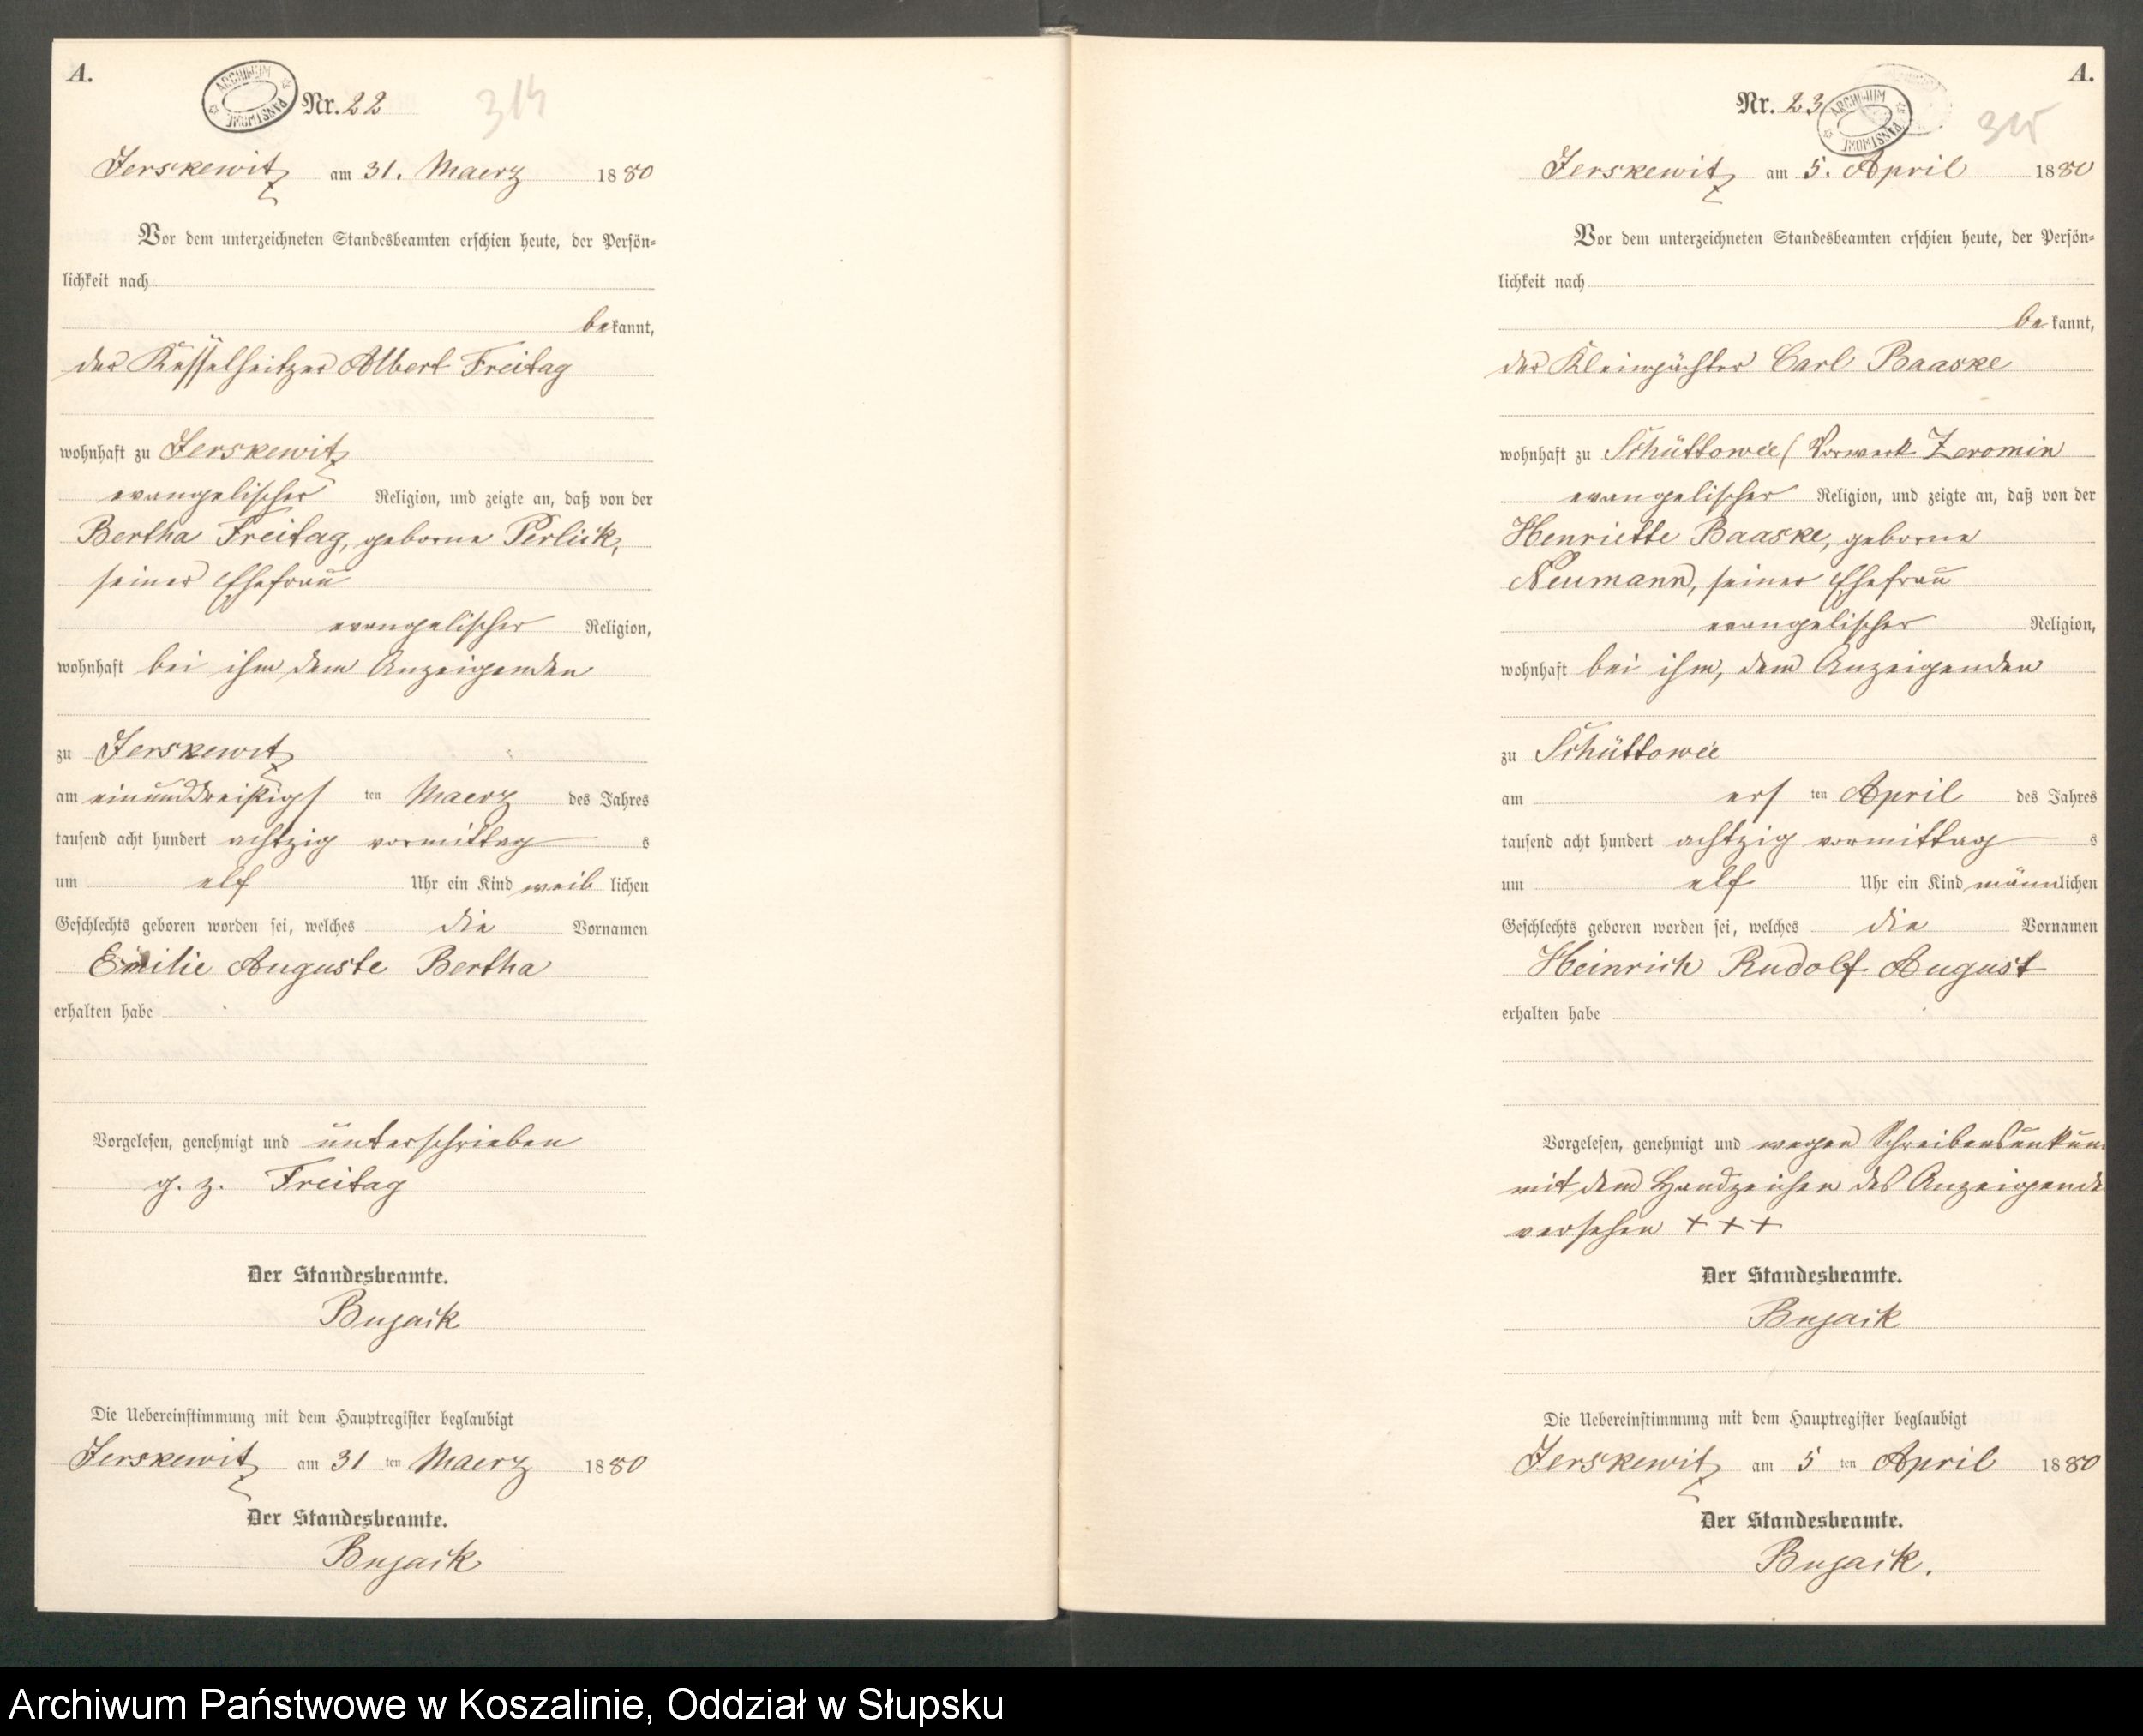 A.
ARCHIWUM PAŃSTWOWE
Nr. 22
314
Jerskewitz am 31. Maerz 1880
Vor dem unterzeichneten Standesbeamten erschien heute, der Persön-
lichkeit nach
bekannt,
der Kesselheitzer Albert Freitag
wohnhaft zu Jerskewitz
evangelischer Religion, und zeigte an, daß von der
Bertha Freitag, geborne Perlick,
seiner Ehefrau
evangelischer Religion,
wohnhaft bei ihm dem Anzeigenden
zu Jerskewitz
am einunddreißigs ten Maerz des Jahres
tausend acht hundert achtzig vormittag s
um elf Uhr ein Kind weib lichen
Geschlechts geboren worden sei, welches die Vornamen
Emilie Auguste Bertha
erhalten habe
Vorgelesen, genehmigt und unterschrieben
g. z. Freitag
Der Standesbeamte.
Bujack
Die Uebereinstimmung mit dem Hauptregister beglaubigt
Jerskewitz am 31 ten Maerz 1880
Der Standesbeamte.
Bujack
A.
Nr. 23
ARCHIWUM PAŃSTWOWE
315
Jerskewitz am 5. April 1880
Vor dem unterzeichneten Standesbeamten erschien heute, der Persön-
lichkeit nach
bekannt,
der Kleinpächter Carl Baaske
wohnhaft zu Schüttowee (Vorwerk Zeromin
evangelischer Religion, und zeigte an, daß von der
Henriette Baaske, geborne
Neumann, seiner Ehefrau
evangelischer Religion,
wohnhaft bei ihm, dem Anzeigenden
zu Schüttowee
am ers ten April des Jahres
tausend acht hundert achtzig vormittag s
um elf Uhr ein Kind männlichen
Geschlechts geboren worden sei, welches die Vornamen
Heinrich Rudolf August
erhalten habe
Vorgelesen, genehmigt und wegen Schreibensunkun
mit dem Handzeichen des Anzeigende
versehen + + +
Der Standesbeamte.
Bujack
Die Uebereinstimmung mit dem Hauptregister beglaubigt
Jerskewitz am 5 ten April 1880
Der Standesbeamte.
Bujack.
Archiwum Państwowe w Koszalinie, Oddział w Słupsku